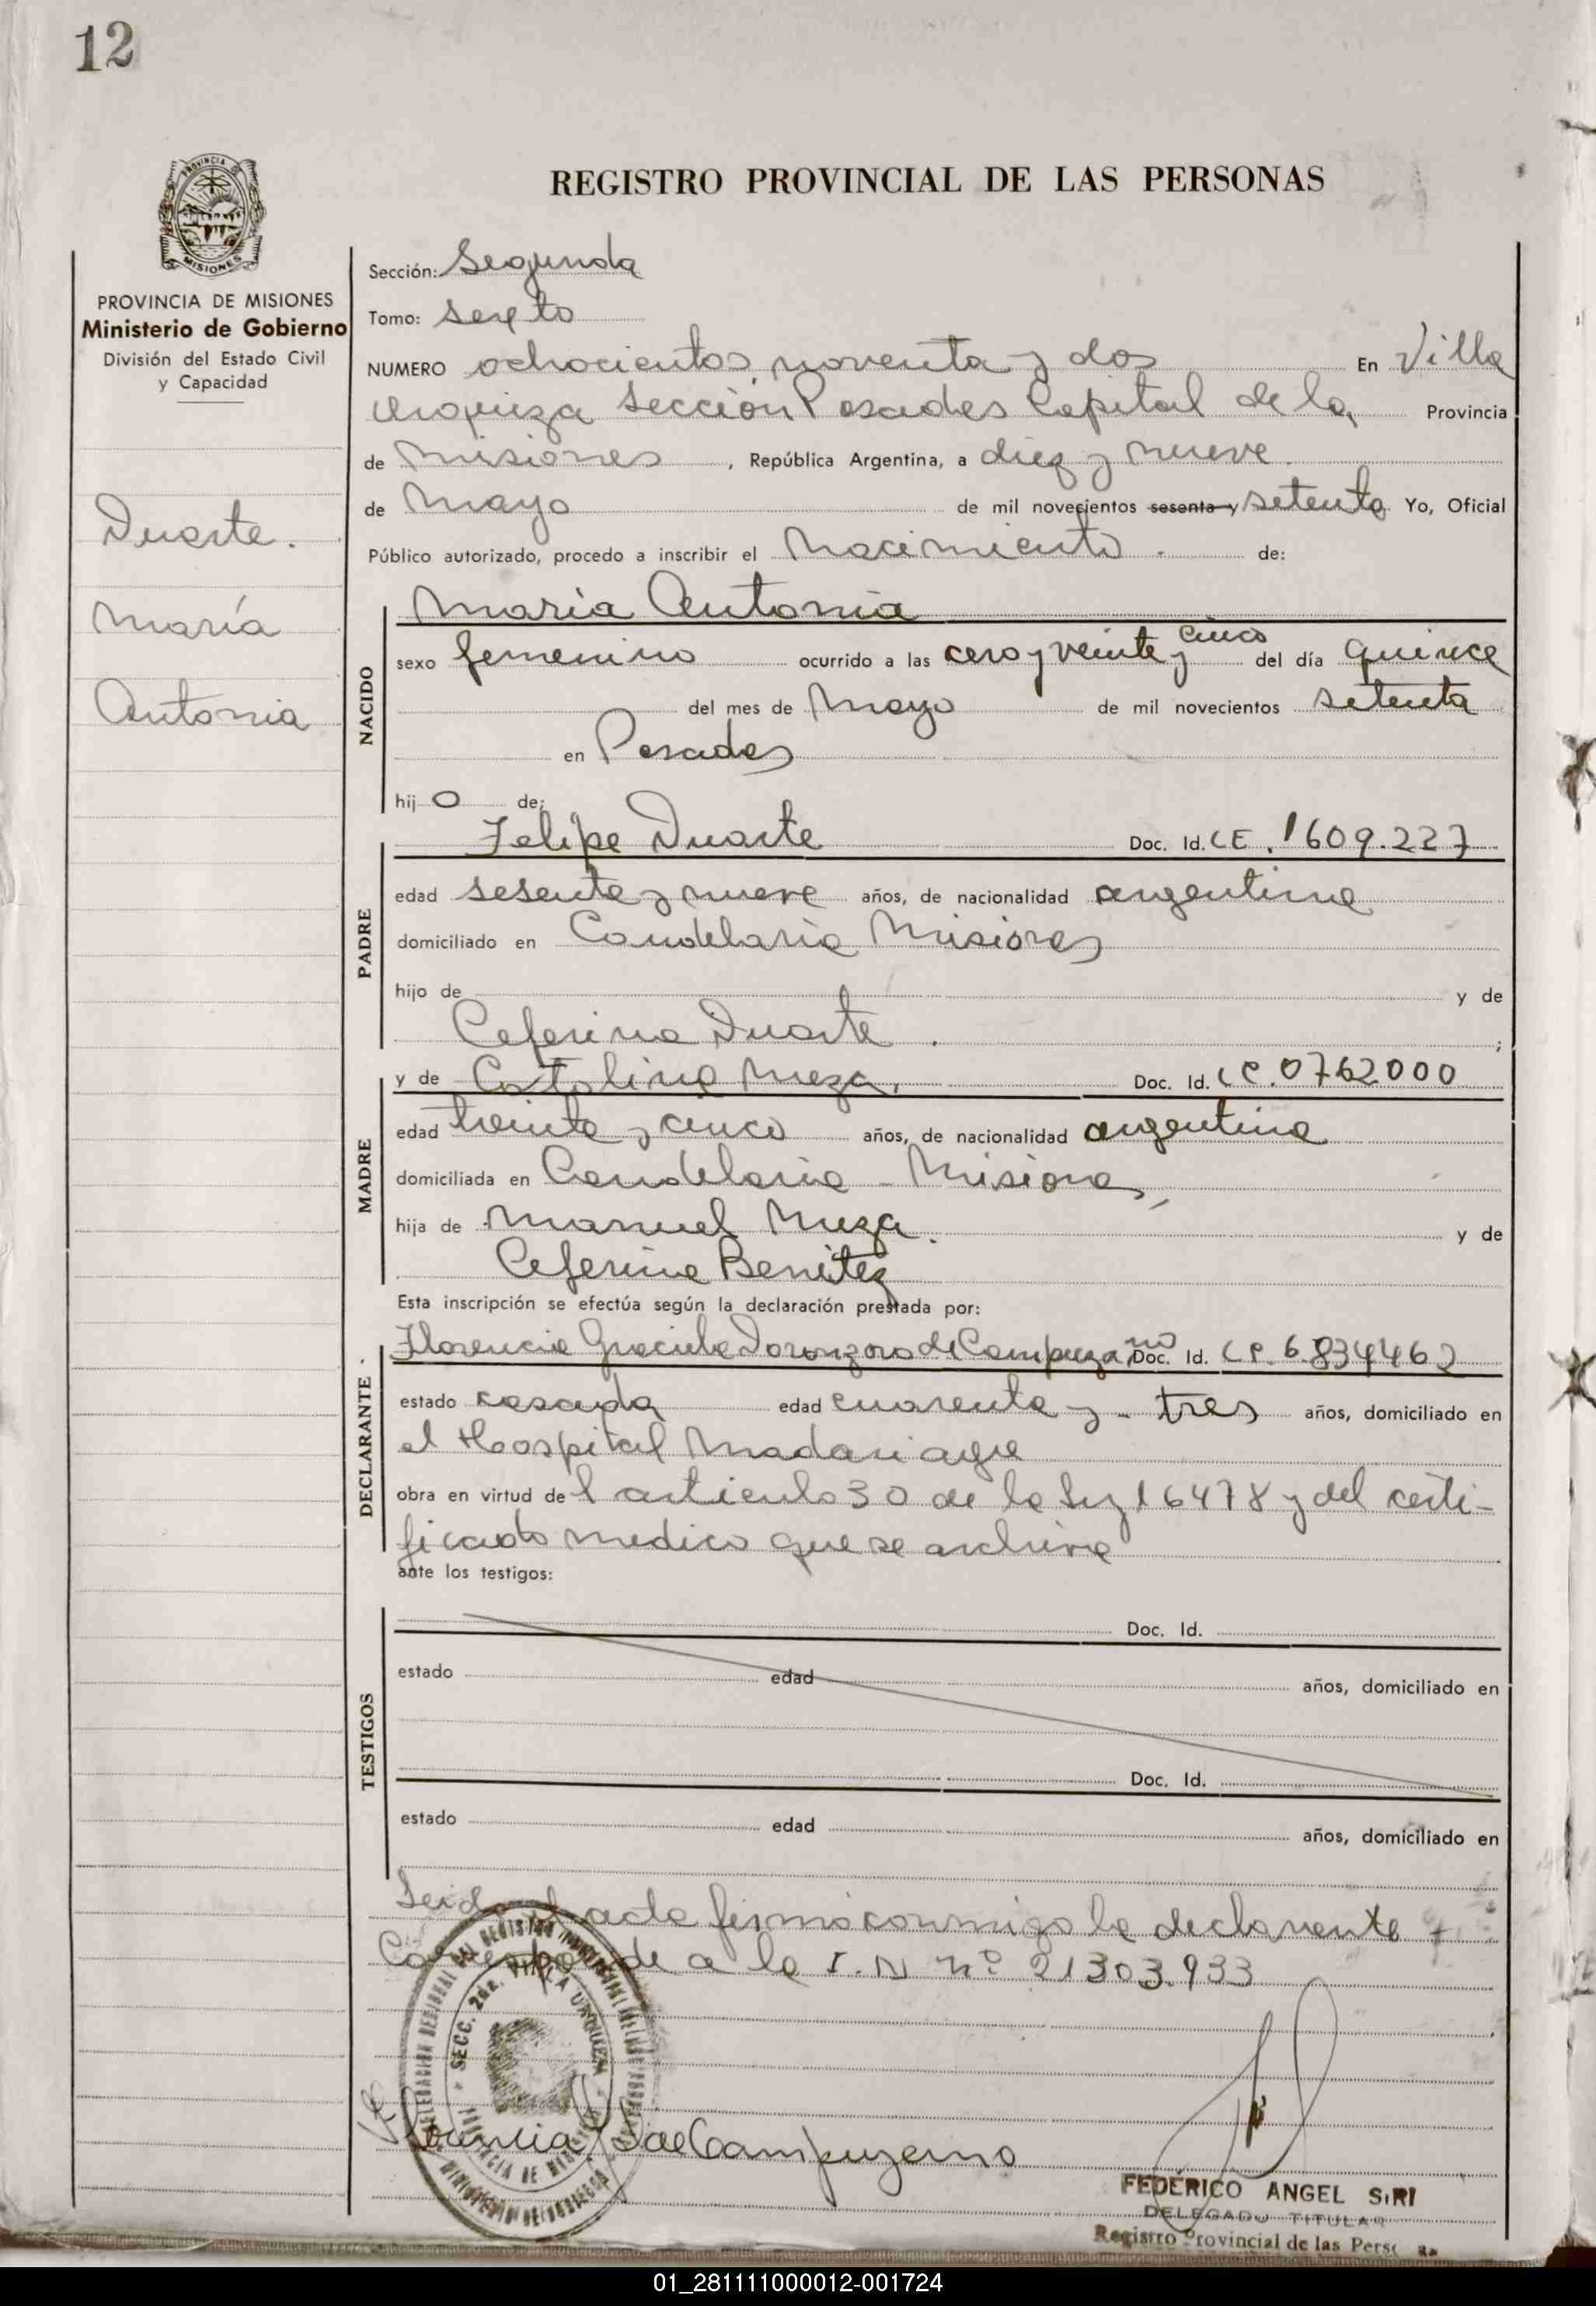 12
REGISTRO PROVINCIAL DE LAS PERSONAS
PROVINCIA
MISIONES
PROVINCIA DE MISIONES
Ministerio de Gobierno
División del Estado Civil
y Capacidad
Duarte.
María
Antonia
Sección: Segunda
Tomo: Sexto
NUMERO ochocientos noventa y dos En Villa
Urquiza Sección Posadas Capital de la Provincia
de Misiones, República Argentina, a diez y nueve
de Mayo de mil novecientos sesenta y setenta Yo, Oficial
Público autorizado, procedo a inscribir el Nacimiento. de:
NACIDO
Maria Antonia
sexo femenino ocurrido a las cero y veinte y cinco del día quince
del mes de Mayo de mil novecientos setenta
en Posadas
hij o de:
PADRE
Felipe Duarte Doc. Id. CE. 1609.227
edad sesenta y nueve años, de nacionalidad argentina
domiciliado en Candelaria Misiones
hijo de y de
Ceferina Duarte.
MADRE
y de Catalina Meza. Doc. Id. LC. 0762000
edad treinta y cinco años, de nacionalidad argentina
domiciliada en Candelaria - Misiones
hija de Manuel Meza. y de
Ceferina Benitez
Esta inscripción se efectúa según la declaración prestada por:
DECLARANTE
Florencia Graciela Doronzoro de Campuzano Doc. Id. LC. 6.834462
estado casada edad cuarenta y - tres años, domiciliado en
el Hospital Madariaga
obra en virtud del articulo 30 de la Ley 16478 y del certi-
ficado medico que se archiva
ante los testigos:
TESTIGOS
Doc. Id.
estado edad años, domiciliado en
Doc. Id.
estado edad años, domiciliado en
Leida el acta firmó conmigo la declarante +
Corresponde a la I. N nº 21303.933
SECC. 2da. VILLA URQUIZA
PROVINCIA DE MISIONES
MINISTERIO DE GOBIERNO
Florencia D de Campuzano
FEDERICO ANGEL SIRI
DELEGADO TITULAR
Registro Provincial de las Pers
01_281111000012-001724